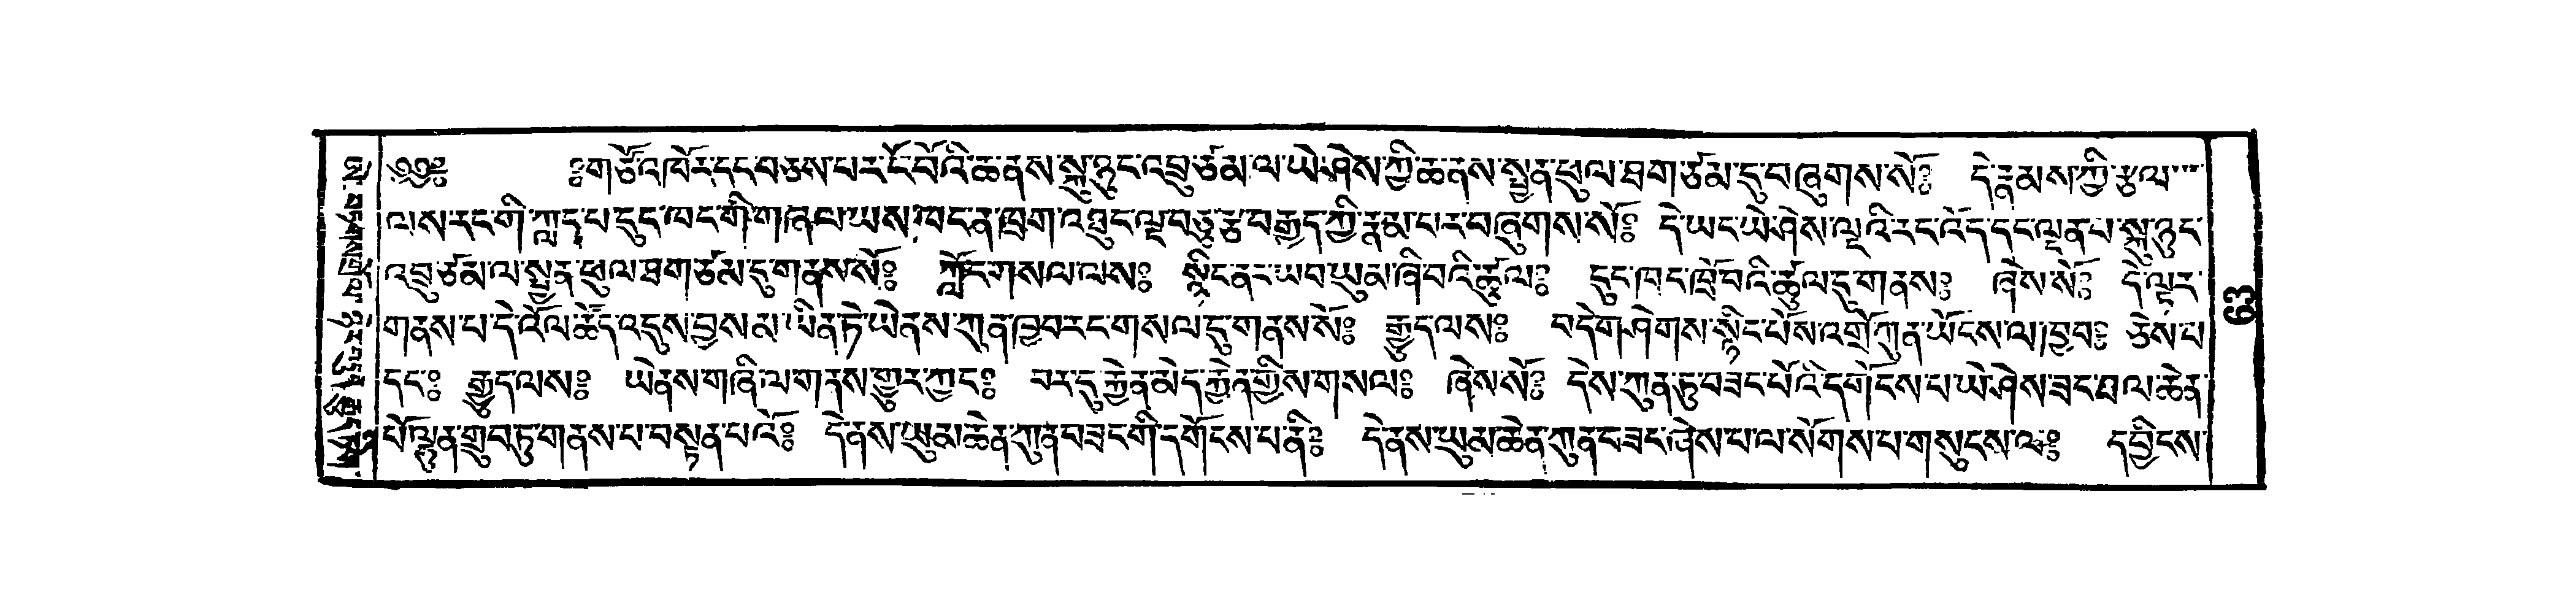 ༄༅༔ ༔གཙོ་འཁོར་དང་བཅས་པར་ངོ་བོའི་ཆ་ནས་སྐུ་ཉུང་འབྲུ་ཙམ་ལ་ཡེ་ཤེས་ཀྱི་ཆ་ནས་སྤྱན་ཕུལ་ཐག་ཙམ་དུ་བཞུགས་སོ༔ དེ་རྣམས་ཀྱི་རྩལ་
ལས་རང་གི་ཀླད་པ་དུང་ཁང་གི་གཞལ་ཡས་ཁང་ན་ཁྲག་འཐུང་ལྔ་བཅུ་རྩ་བརྒྱད་ཀྱི་རྣམ་པར་བཞུགས་སོ༔ དེ་ཡང་ཡེ་ཤེས་ལྔའི་རང་འོད་དང་ལྡན་པ་སྐུ་ཉུང་
འབྲུ་ཙམ་ལ་སྤྱན་ཕུལ་ཐག་ཙམ་དུ་གནས་སོ༔ ཀློང་གསལ་ལས༔ སྙིང་ནང་ཡབ་ཡུམ་ཞི་བའི་ཚུལ༔ དུང་ཁང་ཁྲོ་བོའི་ཚུལ་དུ་གནས༔ ཞེས་སོ༔ དེ་ལྟར་
གནས་པ་དེ་འོལ་ཚོད་འདུས་བྱས་མ་ཡིན་ཏེ་ཡེ་ནས་ཀུན་ཁྱབ་རང་གསལ་དུ་གནས་སོ༔ རྒྱུད་ལས༔ བདེ་གཤེགས་སྙིང་པོས་འགྲོ་ཀུན་ཡོངས་ལ་ཁྱབ༔ ཅེས་པ་
དང་༔ རྒྱུད་ལས༔ ཡེ་ནས་གཞི་ལ་གནས་གྱུར་ཀྱང་༔ བར་དུ་རྐྱེན་མེད་རྐྱེན་གྱིས་གསལ༔ ཞེས་སོ༔ དེས་ཀུན་ཏུ་བཟང་པོའི་དགོངས་པ་ཡེ་ཤེས་ཟང་ཐལ་ཆེན་
པོ་ལྷུན་གྲུབ་ཏུ་གནས་པ་བསྟན་པའོ༔ དེ་ནས་ཡུམ་ཆེན་ཀུན་བཟང་གི་དགོངས་པ་ནི༔ དེ་ནས་ཡུམ་ཆེན་ཀུན་བཟང་ཞེས་པ་ལ་སོགས་པ་གསུངས་ལ༔ དབྱིངས་